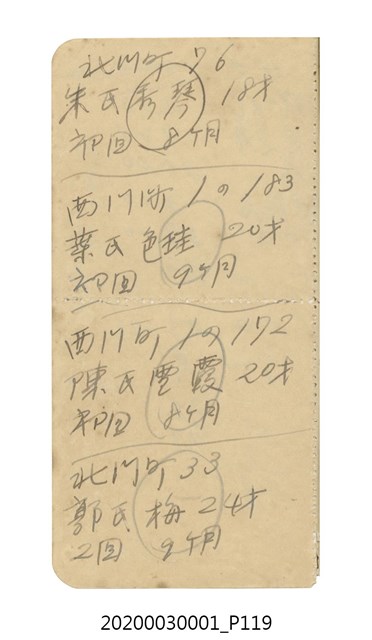 北川町 76
朱氏秀琴 18才
初回 8ケ月
西川町 1の183
葉氏色珪 20才
初回 9ケ月
西川町 1の172
陳氏雲霞 20才
初回 8ケ月
北川町 33
郭氏梅 24才
2回 9ケ月
20200030001_P119